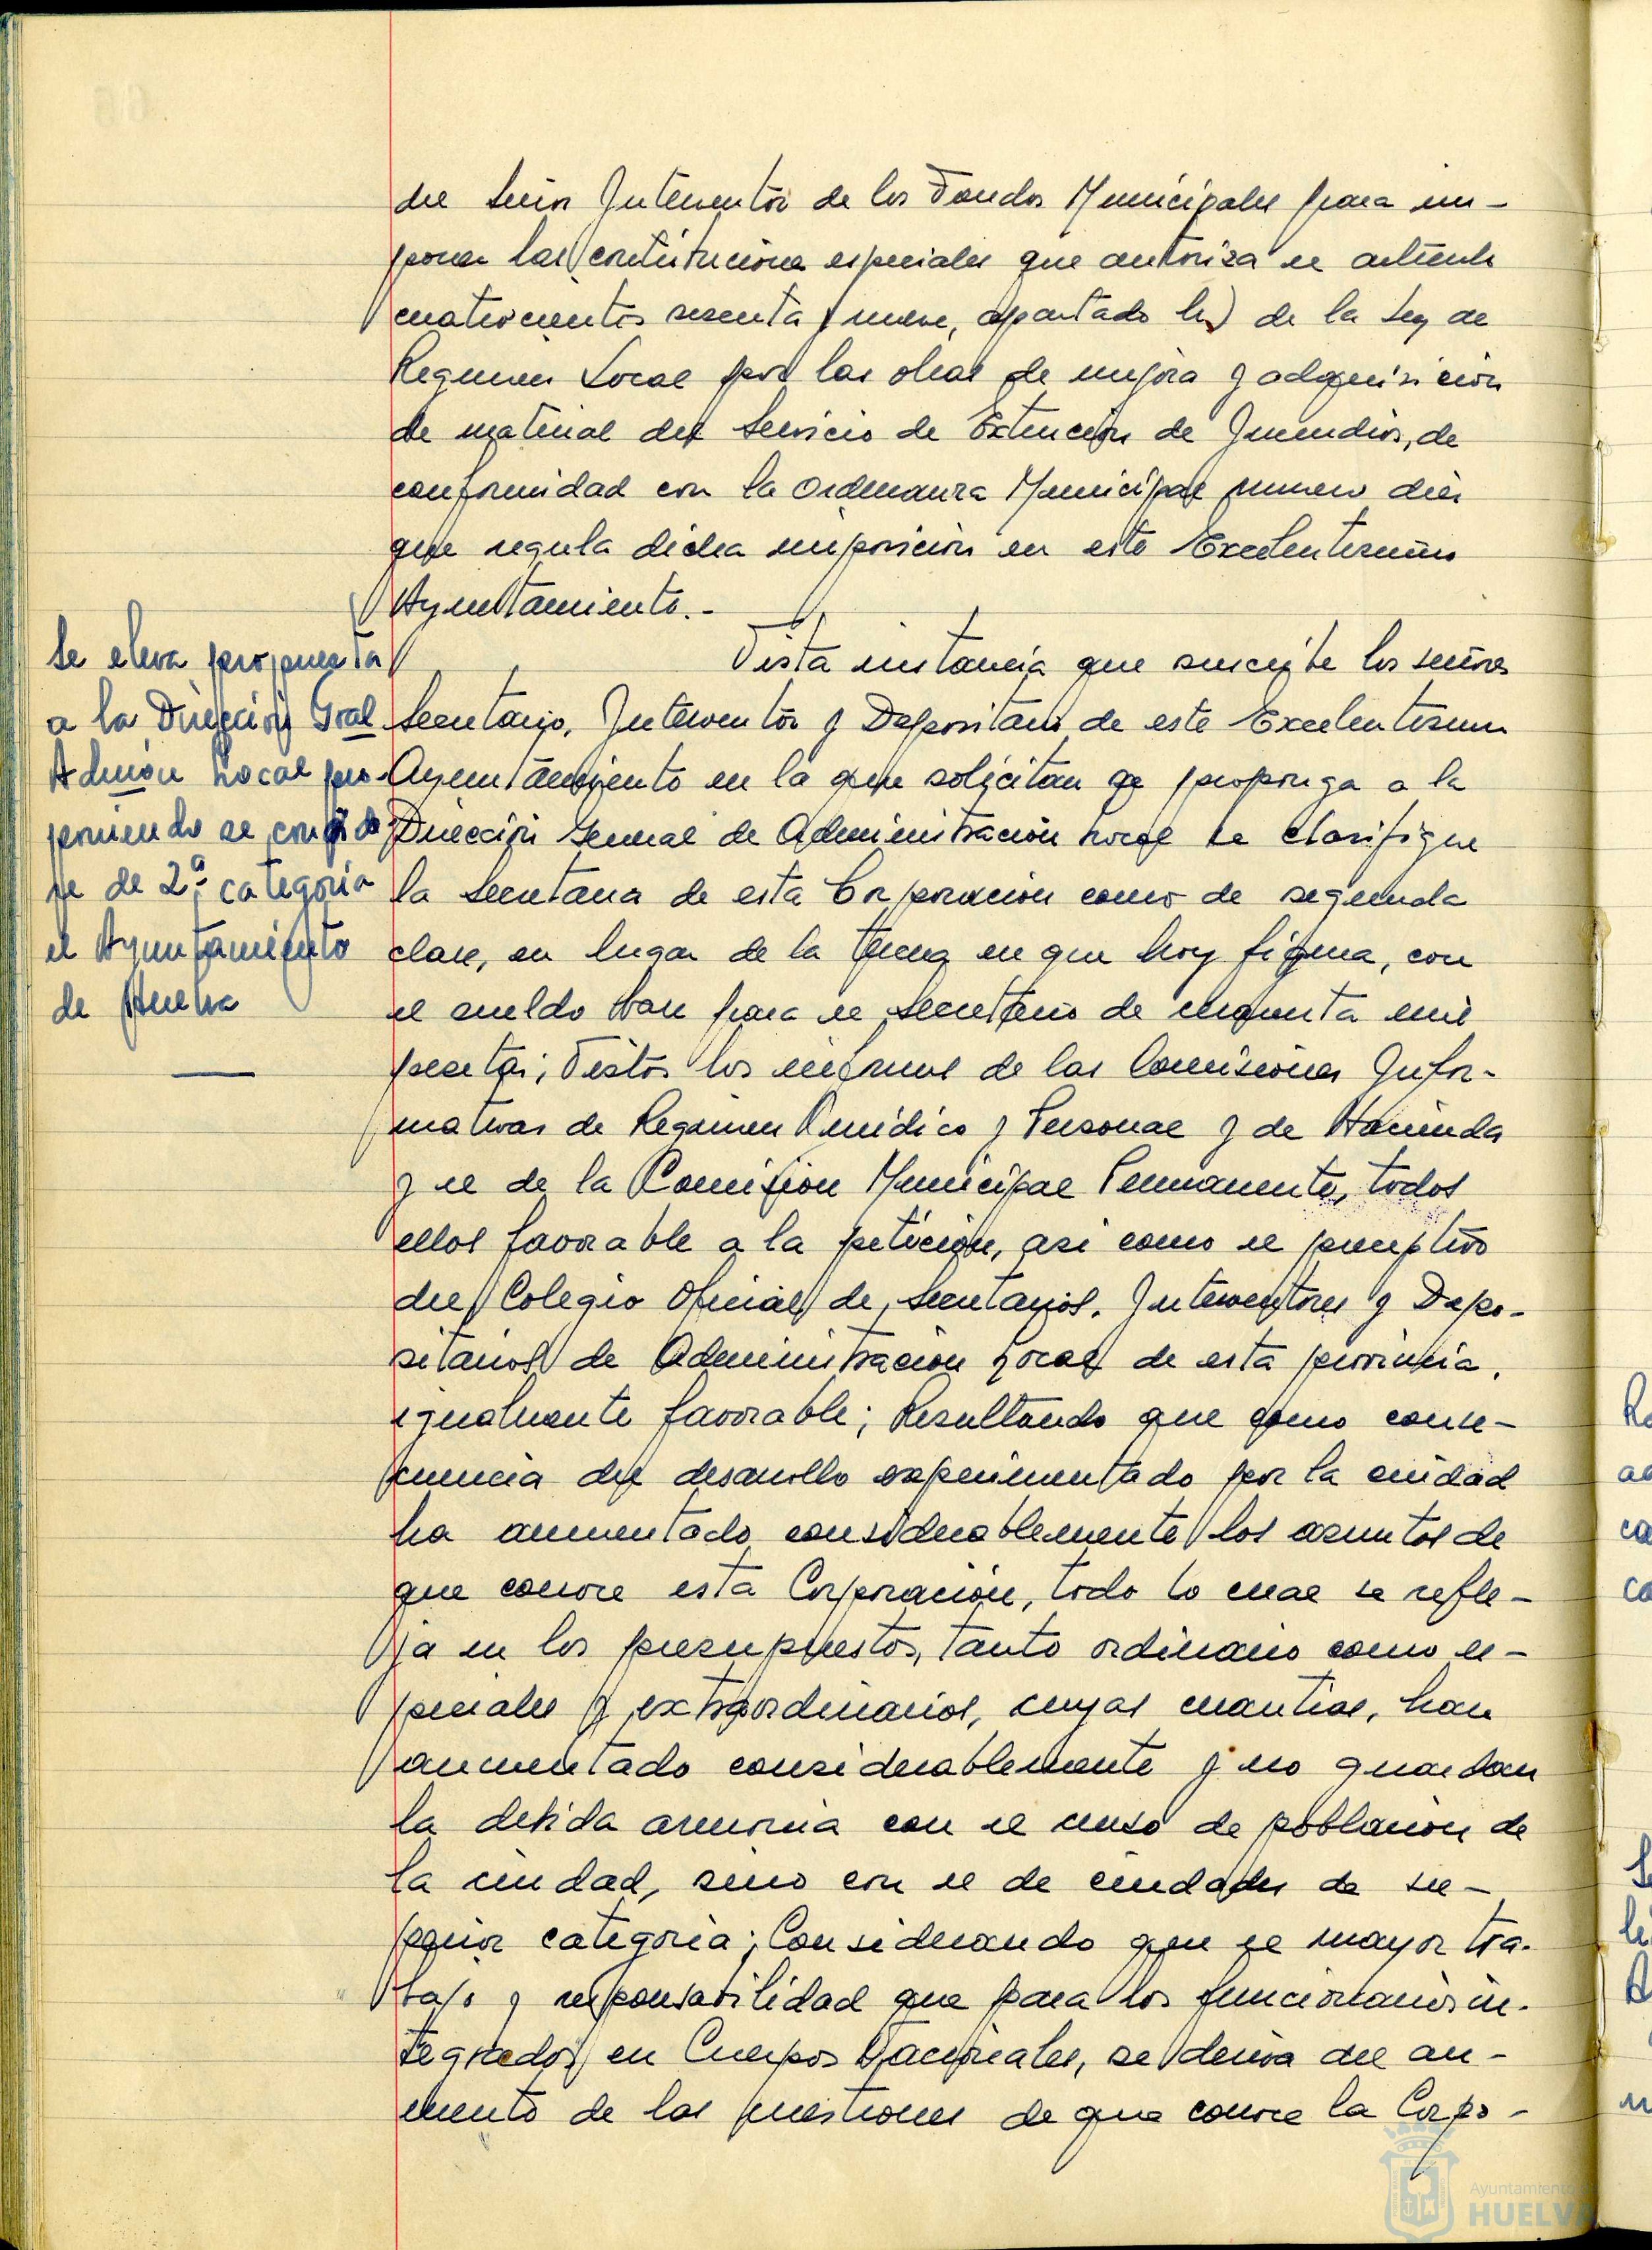 del Señor Interventor de los Fondos Municipales para im-
poner las contribuciones especiales que autoriza el artículo
cuatrocientos sesenta y nueve, apartado b) de la Ley de
Regimen Local por las obras de mejora y adquisición
de material del Servicio de Extinción de Incendios, de
conformidad con la Ordenanza Municipal numero diez
que regula dicha imposición en este Excelentisimo
Ayuntamiento.-
Se eleva propuesta
a la Dirección Gral
Admón Local pro-
poniendo se considere
de 2ª categoria
el Ayuntamiento
de Huelva
Vista instancia que suscribe los señores
Secretario, Interventor y Depositario de este Excelentisimo
Ayuntamiento en la que solicitan se proponga a la
Dirección General de Administración Local se clasifique
la Secretaria de esta Corporación como de segunda
clase, en lugar de la tercera en que hoy figura, con
el sueldo base para el Secretario de cincuenta mil
pesetas; Vistos los informes de las Comisiones Infor-
mativas de Regimen Juridico y Personal y de Hacienda
y el de la Comision Municipal Permanente, todos
ellos favorable a la petición, asi como el preceptivo
del Colegio Oficial de Secretarios, Interventores y Depo-
sitarios de Administración Local de esta provincia,
igualmente favorable; Resultando que como conse-
cuencia del desarrollo experimentado por la ciudad
ha aumentado considerablemente los asuntos de
que conoce esta Corporación, todo lo cual se refle-
ja en los presupuestos, tanto ordinario como es-
peciales y extraordinarios, cuyas cuantias, han
aumentado considerablemente y no guardan
la debida armonia con el censo de población de
la ciudad, sino con el de ciudades de su-
perior categoria; Considerando que el mayor tra-
bajo y responsabilidad que para los funcionarios in-
tegrados en Cuerpos Nacionales, se deriva del au-
mento de las cuestiones de que conoce la Corpo-
Ayuntamiento
HUELVA